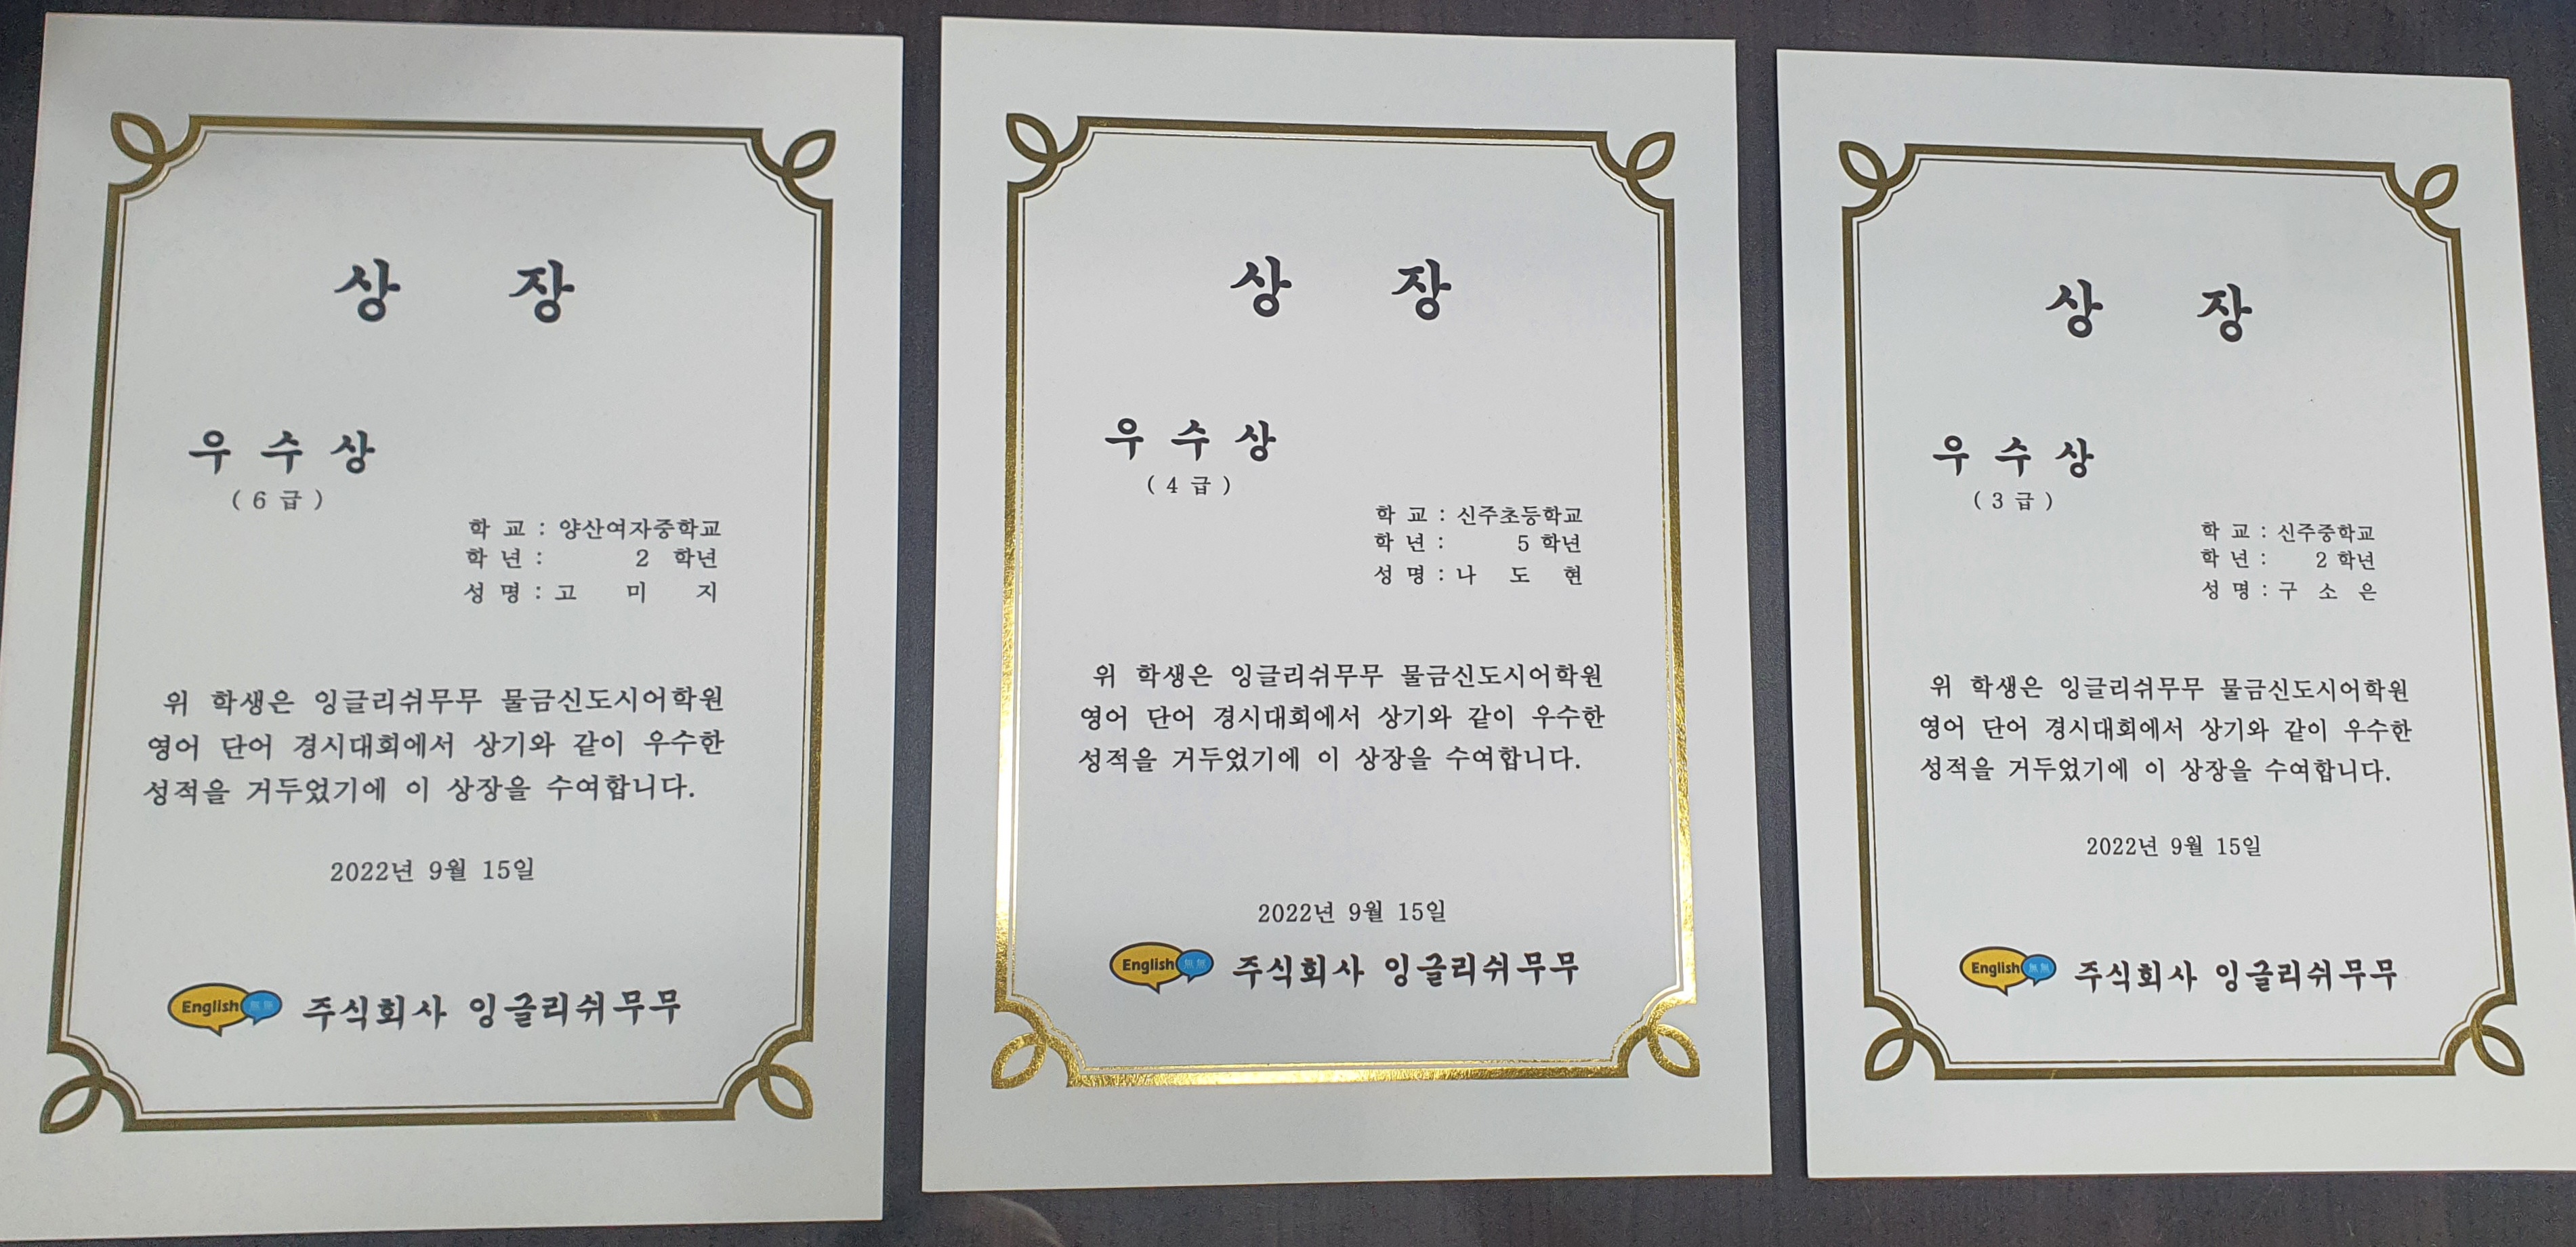 상 장
우 수 상
( 6 급 )
학 교 : 양산여자중학교
학 년 : 2 학년
성 명 : 고 미 지
위 학생은 잉글리쉬무무 물금신도시어학원
영어 단어 경시대회에서 상기와 같이 우수한
성적을 거두었기에 이 상장을 수여합니다.
2022년 9월 15일
English 無無 주식회사 잉글리쉬무무
상 장
우 수 상
( 4 급 )
학 교 : 신주초등학교
학 년 : 5 학년
성 명 : 나 도 현
위 학생은 잉글리쉬무무 물금신도시어학원
영어 단어 경시대회에서 상기와 같이 우수한
성적을 거두었기에 이 상장을 수여합니다.
2022년 9월 15일
English 無無 주식회사 잉글리쉬무무
상 장
우 수 상
( 3 급 )
학 교 : 신주중학교
학 년 : 2 학년
성 명 : 구 소 은
위 학생은 잉글리쉬무무 물금신도시어학원
영어 단어 경시대회에서 상기와 같이 우수한
성적을 거두었기에 이 상장을 수여합니다.
2022년 9월 15일
English 無無 주식회사 잉글리쉬무무